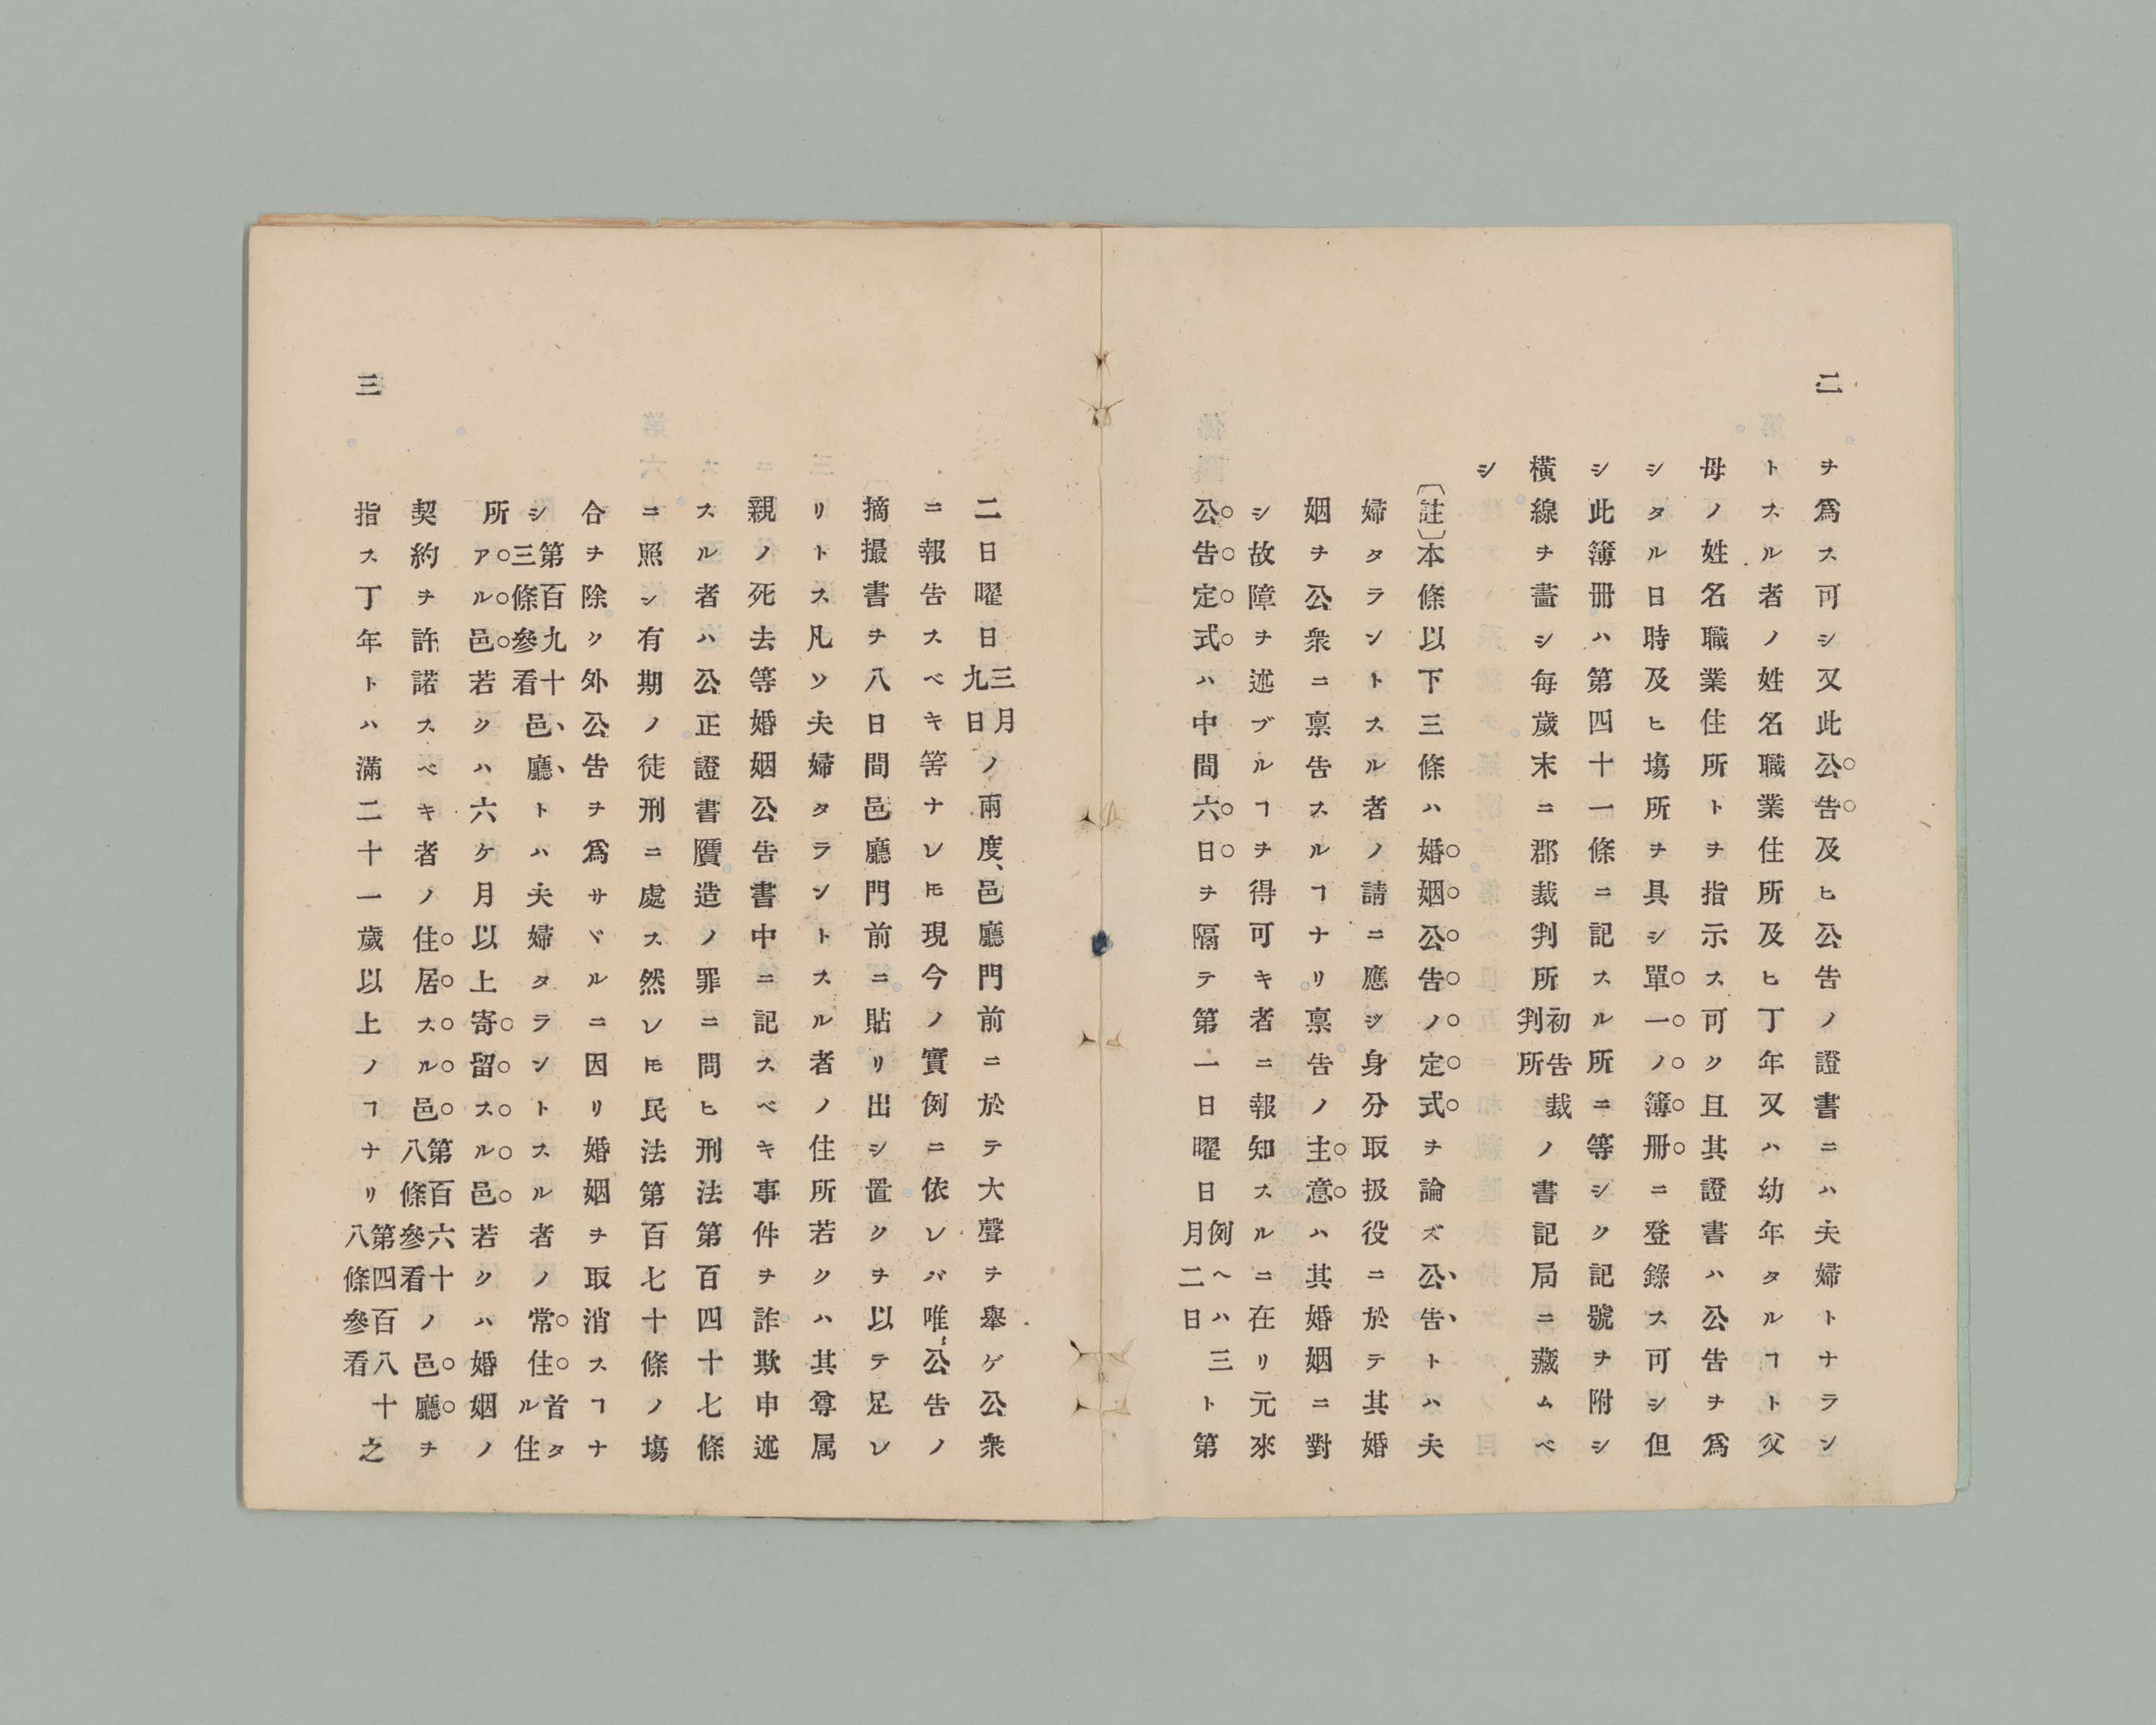 二
ヲ爲ス可シ又此公告及ヒ公告ノ證書ニハ夫婦トナラン
トスル者ノ姓名職業住所及ヒ丁年又ハ幼年タルヿト父
母ノ姓名職業住所トヲ指示ス可ク且其證書ハ公告ヲ爲
シタル日時及ヒ塲所ヲ具シ單一ノ簿册ニ登錄ス可シ但
シ此簿册ハ第四十一條ニ記スル所ニ等シク記號ヲ附シ
橫線ヲ畵シ每歲末ニ郡裁判所初告裁判所ノ書記局ニ藏ムベ
シ
〔註〕本條以下三條ハ婚姻公告ノ定式ヲ論ズ公告トハ夫
婦タラントスル者ノ請ニ應ジ身分取扱役ニ於テ其婚
姻ヲ公衆ニ禀告スルヿナリ禀告ノ主意ハ其婚姻ニ對
シ故障ヲ述ブルヿヲ得可キ者ニ報知スルニ在リ元來
公告定式ハ中間六日ヲ隔テ第一日曜日例ヘハ三月二日ト第
二日曜日三月九日ノ兩度、邑廳門前ニ於テ大聲ヲ舉ゲ公衆
ニ報告スベキ筈ナレ𪜈現今ノ實例ニ依レバ唯公告ノ
摘撮書ヲ八日間邑廳門前ニ貼リ出シ置クヲ以テ足レ
リトス凡ソ夫婦タラントスル者ノ住所若クハ其尊属
親ノ死去等婚姻公告書中ニ記スベキ事件ヲ詐欺申述
スル者ハ公正證書贋造ノ罪ニ問ヒ刑法第百四十七條
ニ照シ有期ノ徒刑ニ處ス然レ𪜈民法第百七十條ノ塲
合ヲ除ク外公告ヲ爲サヾルニ因リ婚姻ヲ取消スヿナ
シ第百九十三條參看邑廳トハ夫婦タラントスル者ノ常住首タル住
所アル邑若クハ六ケ月以上寄留スル邑若クハ婚姻ノ
契約ヲ許諾スベキ者ノ住居スル邑第百六十八條參看ノ邑廳ヲ
指ス丁年トハ滿二十一歲以上ノヿナリ第四百八十八條參看之
三